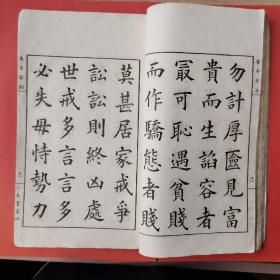 勿計厚匳見富
貴而生諂容者
㝡可恥遇貧賤
而作驕態者賤
莫甚居家戒爭
訟訟則終凶處
世戒多言言多
必失毋恃勢力
朱子家訓